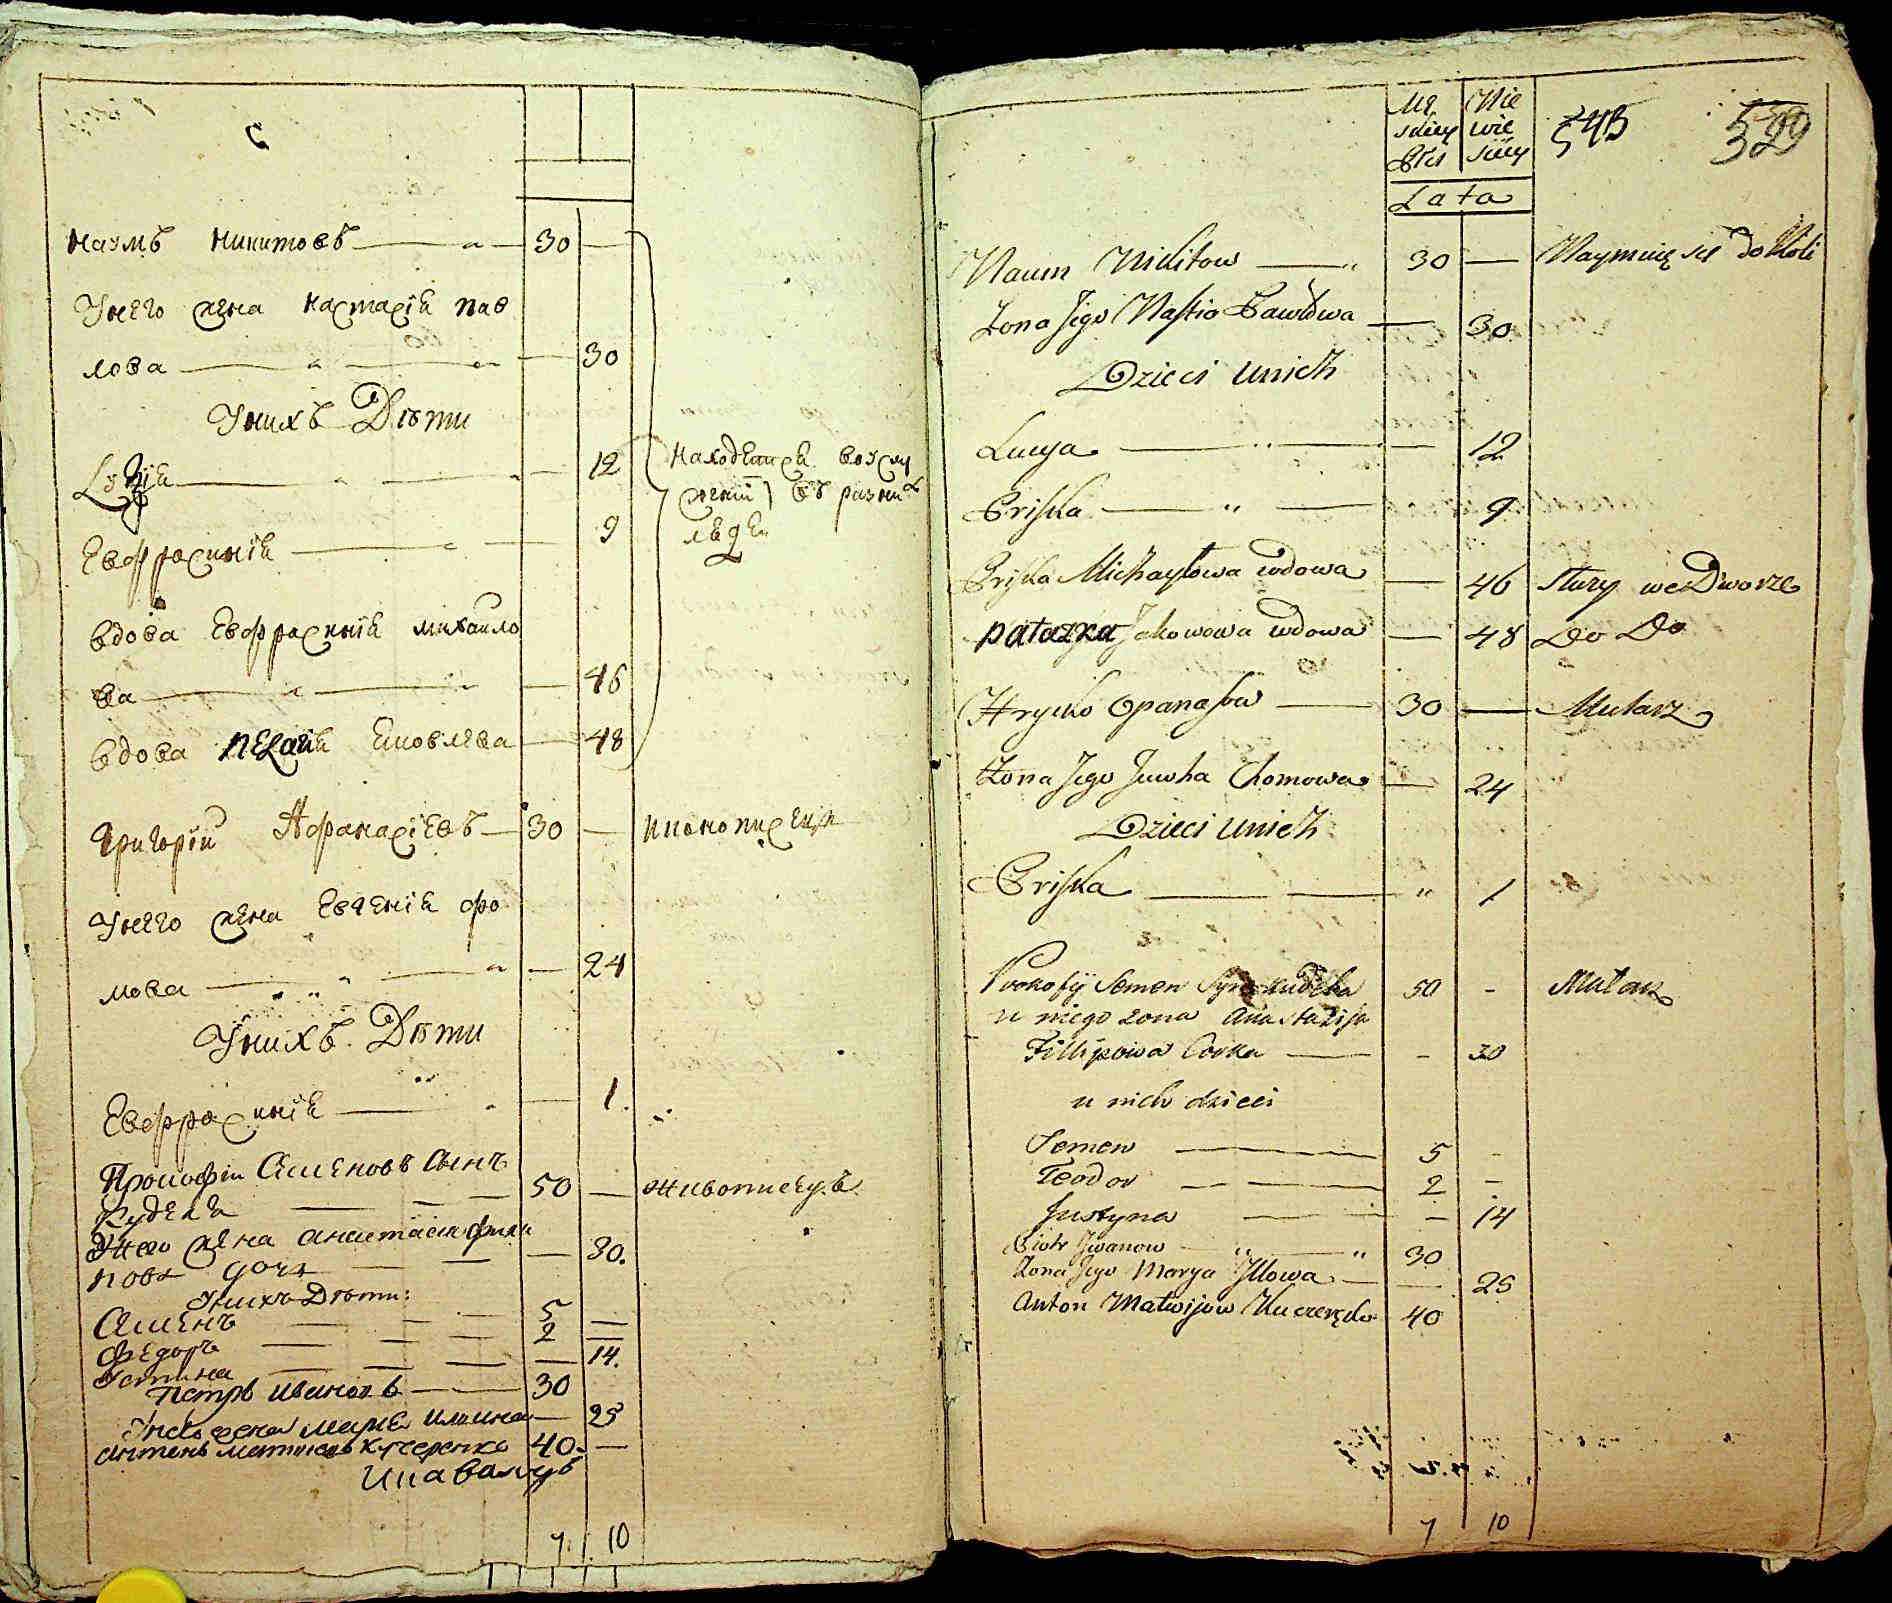 Наумъ Никитовъ 30 —
У него жена Настасія Пав
лова — 30
У нихъ Дѣти
Луція — 12
Находящся воуслу
женіи въ разних
людей
Евфросинія — 9
вдова Евфросинія михайло
ва — 46
вдова пелагія Яковлева — 48
Григорій Афанасіевъ 30 — Иконописецъ
У него жена Евгенія Фо
мова — 24
У нихъ Дѣти
Евфросинія — 1
Прокофій Семеновъ сынъ
Кудека 50 — живописецъ
У него жена анастасія фили
пова дочь — 30.
У нихъ Дѣти:
Семенъ 5 —
Федоръ 2 —
Устина — 14.
Петръ Ивановъ 30
У него жена Мария Илина — 25
Антонъ Матвіевъ Кучеренко 40. —
7. 10
Mę Nie
skiey wie
Płci skiey
543
529
Lata
Naum Nikitow 30 — Naymuię się do Roli
Zona Jego Nastia Pawłowa — 30
Dzieci unich
Lucya — 12
Priska — 9
Priska Michayłowa wdowa — 46 Służy we Dworze
pałazka Jakowowa wdowa — 48 Do Do
Hrycko Opanasow 30 — Malarz
Zona Jego Jewha Chomowa — 24
Dzieci unich
Priska „ 1
Prokofij Semen Syn Kudeka 50 - Malarz
u niego zona Anastazija
Fillipowa Corka - 30
u nich dzieci
Semen 5 -
Teodor 2 -
Justyna - 14
Piotr Jwanow 30
Zona Jego Marya Jllowa — 25
Anton Matwijow Kuczerenko 40
7 10